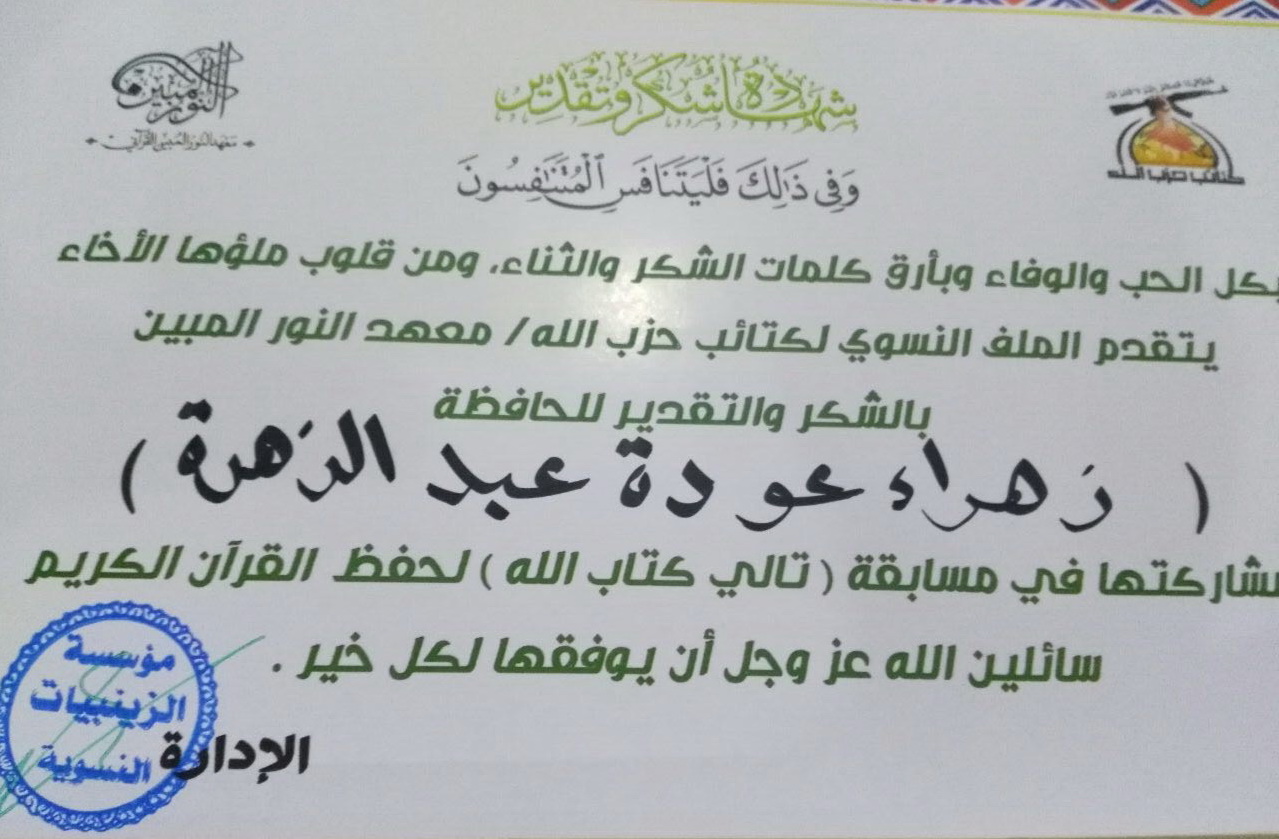 شهادة شكر وتقدير
النور المبين
معهد النور المبين القرآني
كتائب حزب الله
وَفِي ذَٰلِكَ فَلْيَتَنَافَسِ ٱلْمُتَنَٰفِسُونَ
بكل الحب والوفاء وبأرق كلمات الشكر والثناء، ومن قلوب ملؤها الأخاء
يتقدم الملف النسوي لكتائب حزب الله/ معهد النور المبين
بالشكر والتقدير للحافظة
( زهراء عودة عبد الزهرة )
لمشاركتها في مسابقة ( تالي كتاب الله ) لحفظ القرآن الكريم
سائلين الله عز وجل أن يوفقها لكل خير .
الإدارة
مؤسسة
الزينبيات
النسوية